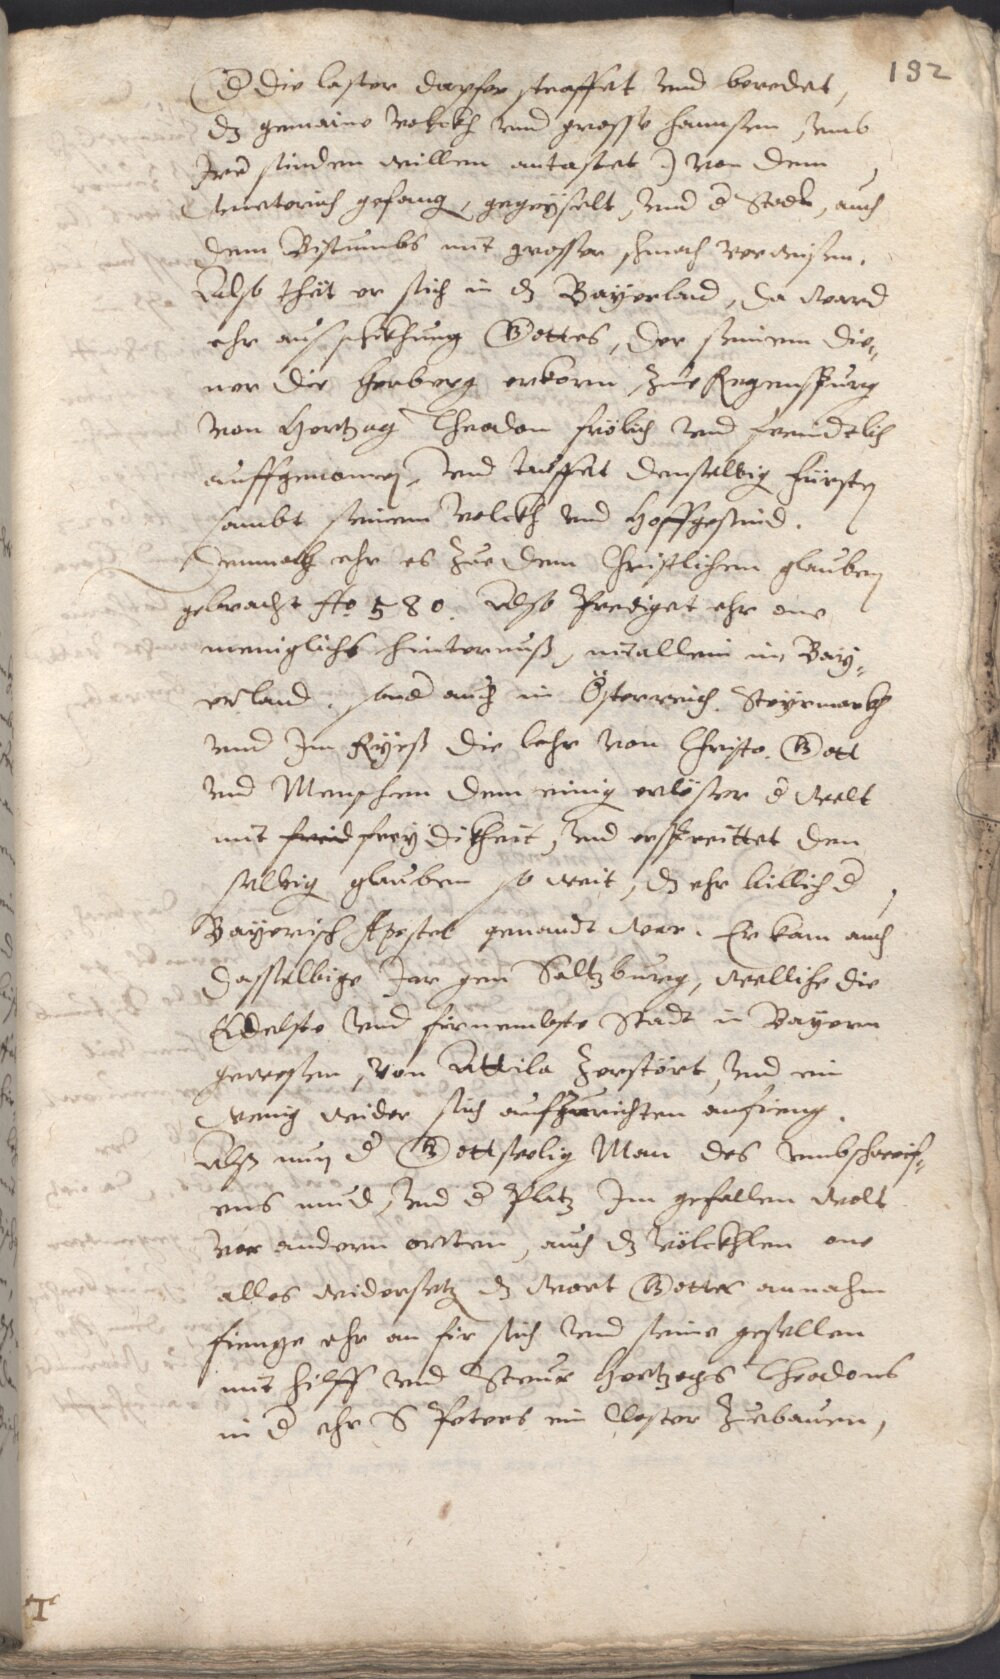 132
(d die laster dapfer straffet vnd beredet,
dz gemaine volckh vnd grosse hannsen, vmb
Jrer sünden willen antastet) von dem
gefang, gegeyselt, vnd d Stadt, auch
dem Bistumbs mit grosser schmach verwisen.
Also thet er sich in dz Bayerland, da ward
ehr aus schikhung Gottes, der seinem die-
ner die herberg erkorn, zue Regenspurg
von Hertzog Theodon frölich vnd freundtlich
auffgenomen, vnd tauffet denselbig Fürsten
sambt seinem volckh vnd Hoffgesind.
Demnach ehr es zue dem Christlichem glauben
gebracht Ao 580. Also Prediget ehr one
meniglichs hinternuß, nit allein im Bay-
erland, sond auch in Österreich, Steyrmarckh
vnd Jm Ryeß die lehr von Christo, Gott
vnd Menschen dem einig erlöser d Welt
mit freid freydikheit, vnd erspreittet den
selbig glauben so weit, dz ehr billich d
Bayerisch Apostel genandt war. Er kam auch
dasselbige Jar gen Saltzburg, welliche die
Edelste vnd fürnembste Stadt in Bayern
gewesen, von Attila zerstört, vnd ein
wenig wider sich aufzurichten anfieng.
Alß nun d Gottseelig Man des vmbschweif-
ens müed, vnd d Platz Jm gefallen wolt
vor andern orten, auch dz völckhlen one
alles widersetz dz Wort Gottes annahm
fienge ehr an für sich vnd seine gesellen
mit hilff vnd Steur Hertzogs Theodons
in d ehr S Peters ein Closter zubauen,